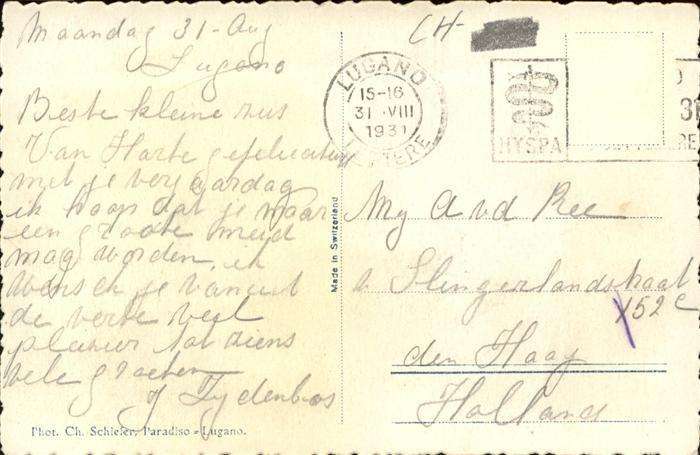 Maandag 31-Aug
Lugano
Beste kleine nus
Van Harte gefeliciteerd
met je verjaardag
ik hoop dat je maar
een groote meid
mag worden, ik
wensch je vanuit
de verte veel
plezier tot ziens
vele groeten
J Zydenbos
Phot. Ch. Schiefer, Paradiso - Lugano.
Made in Switzerland
CH-
LUGANO
15-16
31.VIII
1931
LETTERE
HYSPA
Mej A vd Ree
Slingerlandstraat
152 c
den Haag
Holland